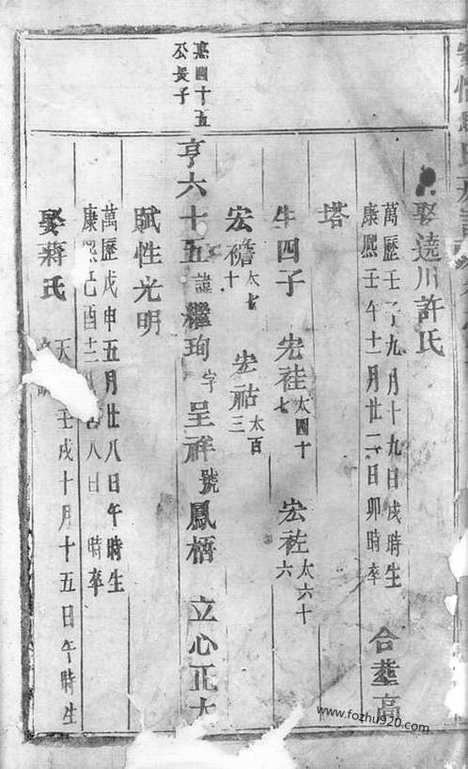 娶遶川許氏
萬歷壬子九月十九日戌時生
康熙壬午十一月廿二日卯時卒
合葬高
塔
生四子 宏袿太四十七 宏祐太六十六
宏襜太七十 宏祜太百三
熹四十五公長子
亨六十五諱繼珣字呈祥號鳳栖 立心正大
賦性光明
萬歷戊申五月廿八日午時生
康熙己酉十二月 八日 時卒
娶蔣氏
天 壬戌十月十五日午時生
www.fozhu920.com